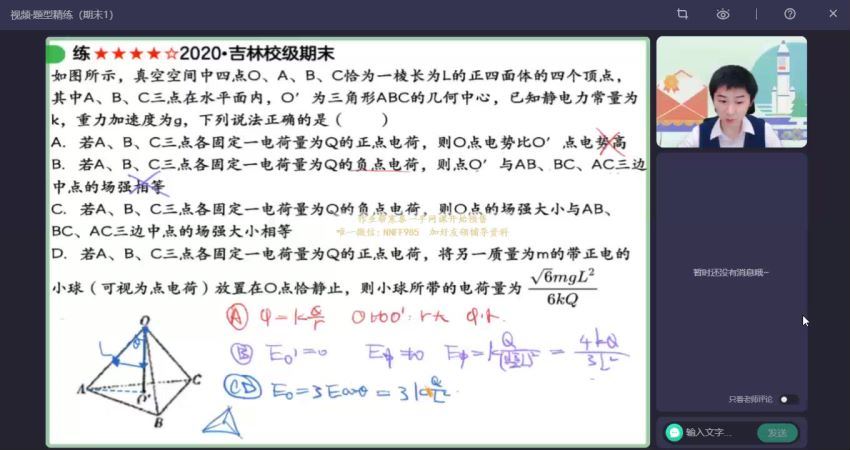 视频·题型精练（期末1）
练★★★★☆2020·吉林校级期末
如图所示，真空空间中四点O、A、B、C恰为一棱长为L的正四面体的四个顶点，
其中A、B、C三点在水平面内，O′为三角形ABC的几何中心，已知静电力常量为
k，重力加速度为g，下列说法正确的是（ ）
A．若A、B、C三点各固定一电荷量为Q的正点电荷，则O点电势比O′点电势高
B．若A、B、C三点各固定一电荷量为Q的负点电荷，则点O′与AB、BC、AC三边
中点的场强相等
C．若A、B、C三点各固定一电荷量为Q的负点电荷，则O点的场强大小与AB、
BC、AC三边中点的场强大小相等
唯一微信：NNFF985 加好友领辅导资料
D．若A、B、C三点各固定一电荷量为Q的正点电荷，将另一质量为m的带正电的
小球（可视为点电荷）放置在O点恰静止，则小球所带的电荷量为 √6mgL²/6kQ
Ⓐ φ=kQ/r
Ⓑ E₀′=0 E中≠0 = 4kQ/3L²
ⒸⒹ E₀=3Ecosθ=3kQ/L²
O
θ
L
A
C
O′
B
暂时还没有消息哦~
只看老师评论
输入文字...
发送